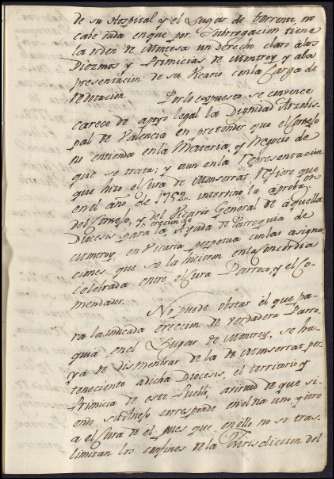 de su Hospital y el Lugar de Varrent, no
cabe duda en que por Subrrogacion tiene
la orden de Montesa un derecho claro a los
Diezmos y Primicias de Montroy y a la
presentacion de su Vicario con la Carga de
dotacion.
Por lo expuesto, se convence
carece de apoyo legal la Dignidad Arzobis
pal de Valencia en pretender que el Consejo
no entienda en la Materia, y Negocio de
que se trata; y aun en la representacion
que hizo el Cura de Monserrat refiere que
en el año de 1752 intervino la aprob.on
del Consejo, y del Vicario General de aquella
Diocesis para la ereccion de Ayuda de Parroquia de
Montroy, en Vicaria perpetua con las asigna
ciones que se la hicieron en la Concordia
Celebrada entre el Cura Parroco, y el Co-
mendador.
No puede obstar el que pa-
ra la indicada ereccion de verdadera Parro
quia en el Lugar de Montroy, se ha-
ya de desmembrar de la de Monserrat per
teneciente a dicha Diocesis, el territorio y
Primicia de este Pueblo, a virtud de que si
endo, el Consejo corresponde en el na uno y otro
a el Cura de el, pues que en ello no se tras-
limitan los confines de la Jurisdiccion del